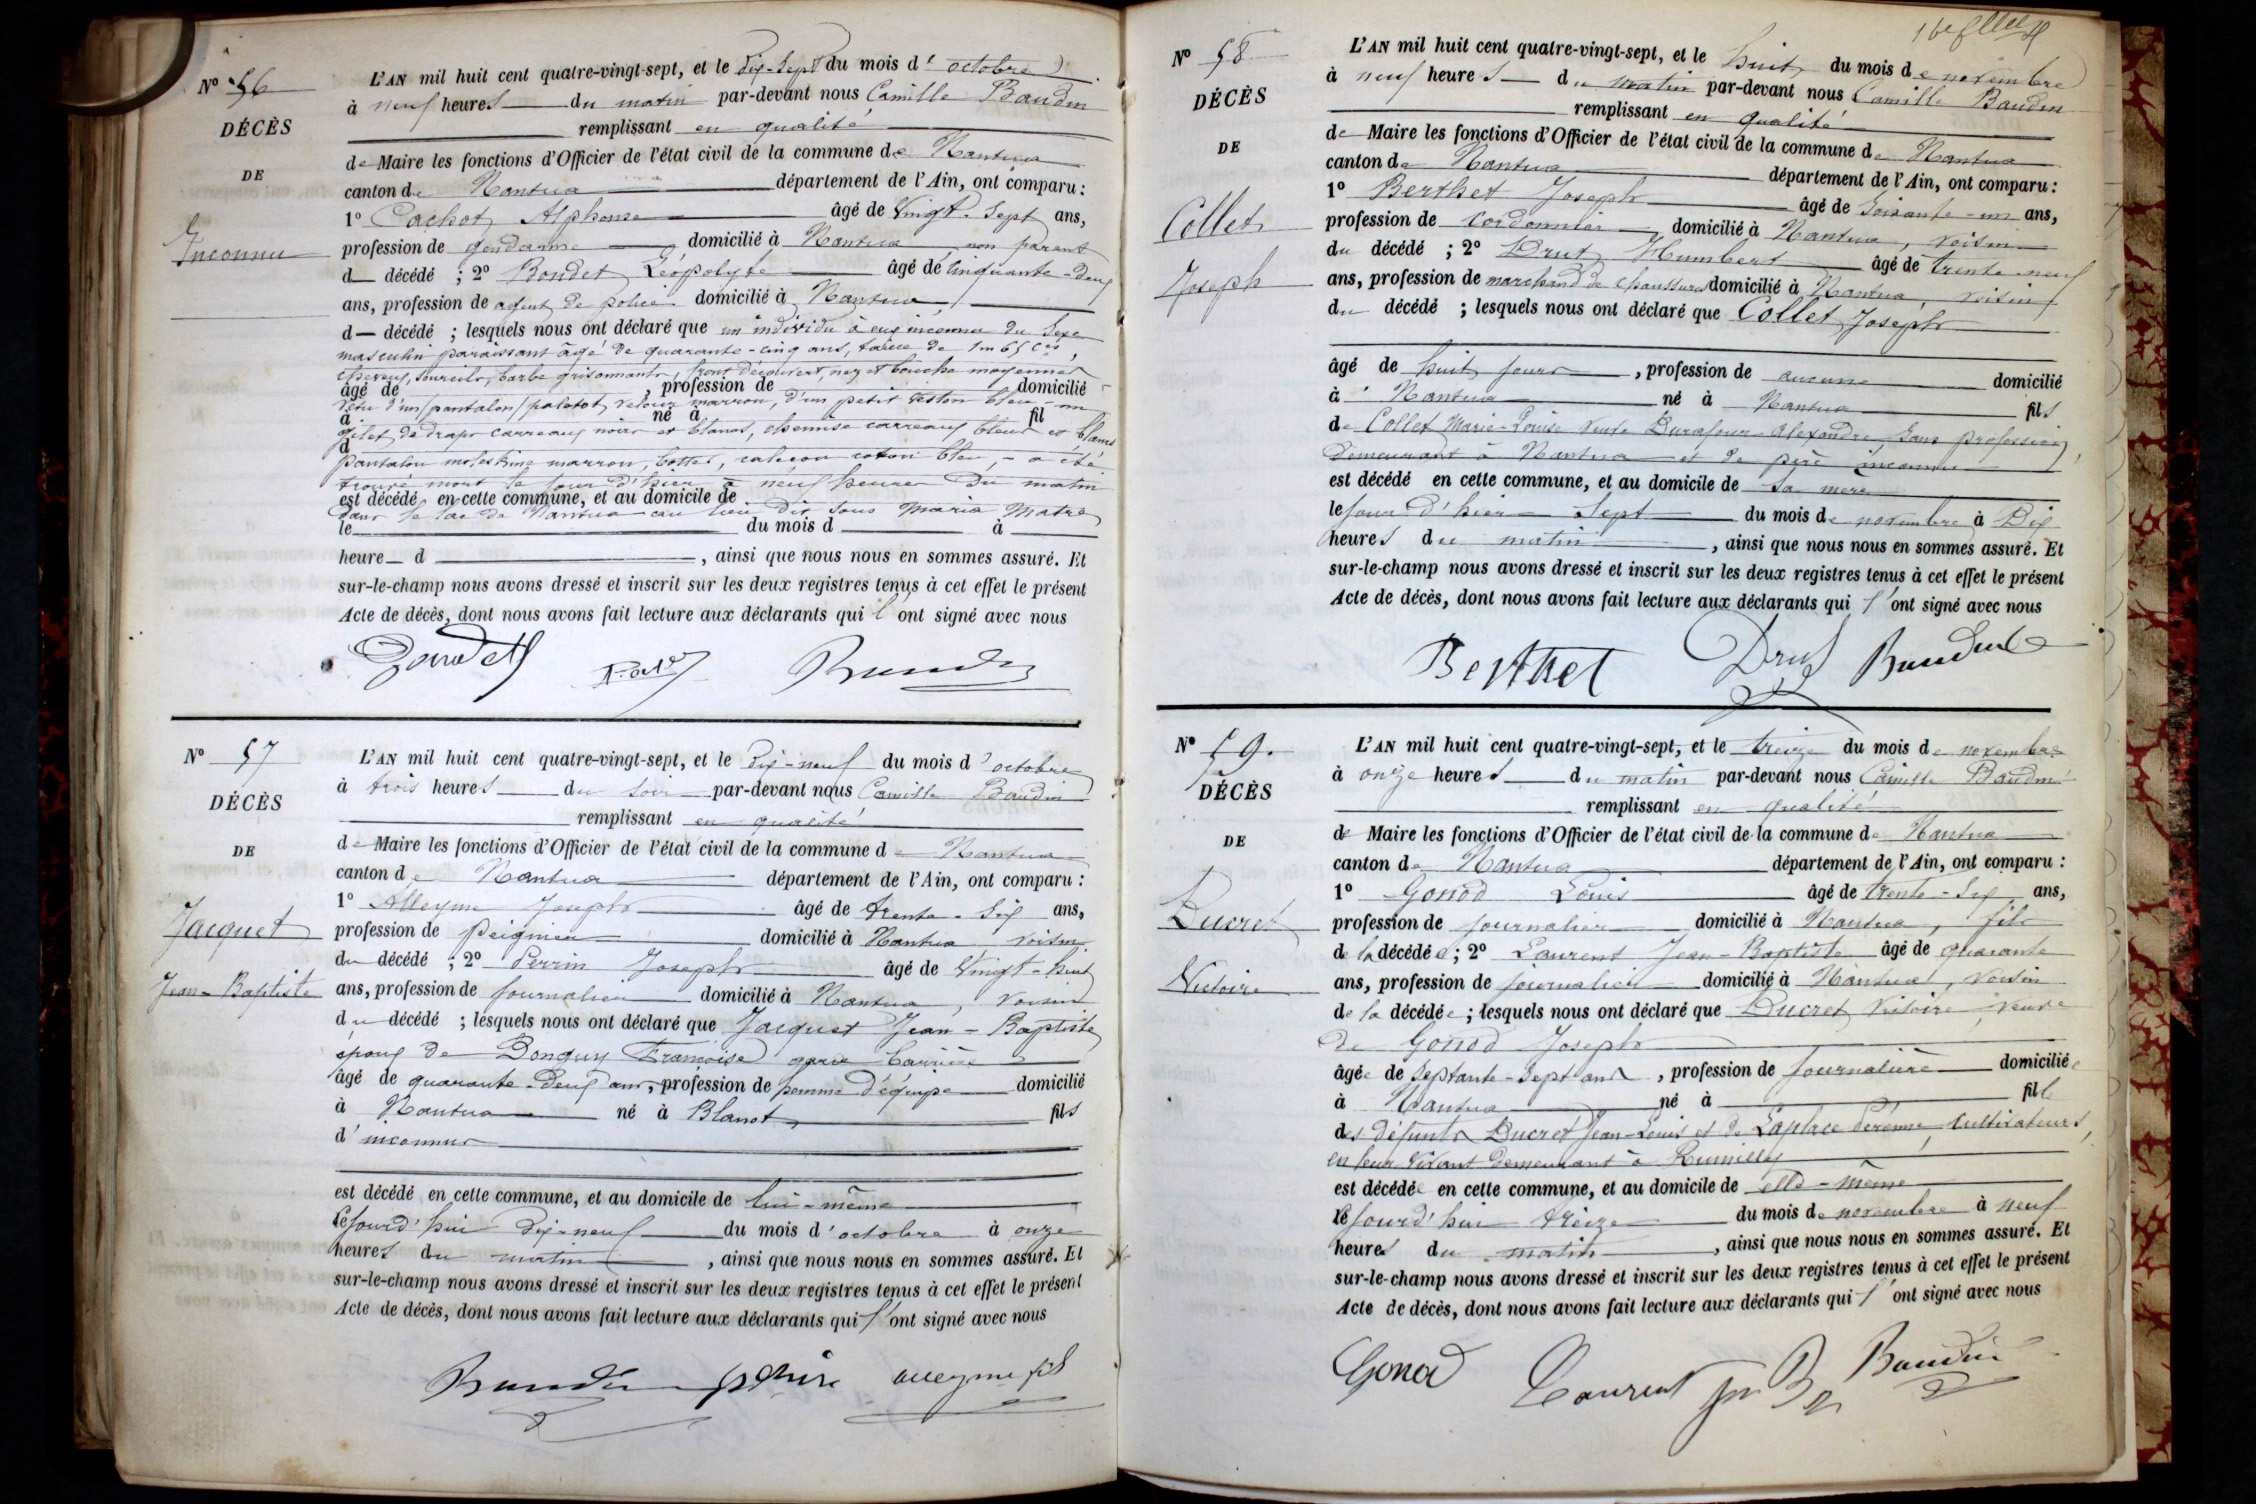 Nº 56
DÉCÈS
DE
Inconnu
L'AN mil huit cent quatre-vingt-sept, et le dix-sept du mois d'octobre
à neuf heures du matin par-devant nous Camille Baudin
remplissant en qualité
de Maire les fonctions d'Officier de l'état civil de la commune de Nantua
canton de Nantua département de l'Ain, ont comparu :
1º Cachot Alphonse âgé de Vingt-sept ans,
profession de gendarme domicilié à Nantua non parent
d décédé ; 2º Boudet Léopolyte âgé de cinquante-deux
ans, profession de agent de police domicilié à Nantua
d décédé ; lesquels nous ont déclaré que un individu à eux inconnu du sexe
masculin paraissant âgé de quarante-cinq ans, taille de 1m 65 ces,
cheveux, sourcils, barbe grisonnants, front découvert, nez et bouche moyennes
âgé de , profession de domicilié
vêtu d'un pantalon paletot velours marron, d'un petit veston bleu - un
à né à fil
gilet de drap carreaux noirs et blancs, chemise carreaux bleus et blancs
d
pantalon moleskine marron, bottes, caleçon coton bleu, - a été
trouvé mort le jour d'hier à neuf heures du matin
est décédé en cette commune, et au domicile de
dans le lac de Nantua au lieu dit sous Maria Matre
le du mois d à
heure d , ainsi que nous nous en sommes assuré. Et
sur-le-champ nous avons dressé et inscrit sur les deux registres tenus à cet effet le présent
Acte de décès, dont nous avons fait lecture aux déclarants qui l'ont signé avec nous
Boudet Baudin
Nº 57
DÉCÈS
DE
Jacquet
Jean-Baptiste
L'AN mil huit cent quatre-vingt-sept, et le dix-neuf du mois d'octobre
à trois heures du soir par-devant nous Camille Baudin
remplissant en qualité
de Maire les fonctions d'Officier de l'état civil de la commune de Nantua
canton de Nantua département de l'Ain, ont comparu :
1º Alleyme Joseph âgé de trente-six ans,
profession de peignier domicilié à Nantua voisin
du décédé ; 2º Perrin Joseph âgé de Vingt-huit
ans, profession de journalier domicilié à Nantua, voisin
du décédé ; lesquels nous ont déclaré que Jacquet Jean-Baptiste
époux de Donguy Françoise garde barrière
âgé de quarante-deux ans, profession de homme d'équipe domicilié
à Nantua né à Blanot fils
d'inconnus
est décédé en cette commune, et au domicile de lui-même
le jourd'hui dix-neuf du mois d'octobre à onze
heures du matin , ainsi que nous nous en sommes assuré. Et
sur-le-champ nous avons dressé et inscrit sur les deux registres tenus à cet effet le présent
Acte de décès, dont nous avons fait lecture aux déclarants qui l'ont signé avec nous
Baudin alleyme fils
Nº 58
DÉCÈS
DE
Collet
Joseph
L'AN mil huit cent quatre-vingt-sept, et le huit du mois de novembre
à neuf heures du matin par-devant nous Camille Baudin
remplissant en qualité
de Maire les fonctions d'Officier de l'état civil de la commune de Nantua
canton de Nantua département de l'Ain, ont comparu :
1º Berthet Joseph âgé de soixante-un ans,
profession de cordonnier domicilié à Nantua, voisin
du décédé ; 2º Drut Humbert âgé de trente-neuf
ans, profession de marchand de chaussures domicilié à Nantua, voisin
du décédé ; lesquels nous ont déclaré que Collet Joseph
âgé de huit jours , profession de aucune domicilié
à Nantua né à Nantua fils
de Collet Marie-Louise veuve Durafour Alexandre sans profession
demeurant à Nantua et de père inconnu
est décédé en cette commune, et au domicile de sa mère
le jour d'hier sept du mois de novembre à Dix
heures du matin , ainsi que nous nous en sommes assuré. Et
sur-le-champ nous avons dressé et inscrit sur les deux registres tenus à cet effet le présent
Acte de décès, dont nous avons fait lecture aux déclarants qui l'ont signé avec nous
Berthet Drut Baudin
Nº 59.
DÉCÈS
DE
Ducret
Victoire
L'AN mil huit cent quatre-vingt-sept, et le treize du mois de novembre
à onze heures du matin par-devant nous Camille Baudin
remplissant en qualité
de Maire les fonctions d'Officier de l'état civil de la commune de Nantua
canton de Nantua département de l'Ain, ont comparu :
1º Gonod Louis âgé de trente-six ans,
profession de journalier domicilié à Nantua, fils
de la décédée ; 2º Laurent Jean-Baptiste âgé de quarante
ans, profession de journalier domicilié à Nantua, voisin
de la décédée ; lesquels nous ont déclaré que Ducret Victoire, veuve
de Gonod Joseph
âgée de septante-sept ans , profession de journalière domiciliée
à Nantua né à fille
des défunts Ducret Jean-Louis et de Laplace Pérenne, cultivateurs,
en leur vivant demeurant à Rumilly
est décédée en cette commune, et au domicile de elle-même
le jourd'hui treize du mois de novembre à neuf
heures du matin , ainsi que nous nous en sommes assuré. Et
sur-le-champ nous avons dressé et inscrit sur les deux registres tenus à cet effet le présent
Acte de décès, dont nous avons fait lecture aux déclarants qui l'ont signé avec nous
Gonod Laurent Baudin